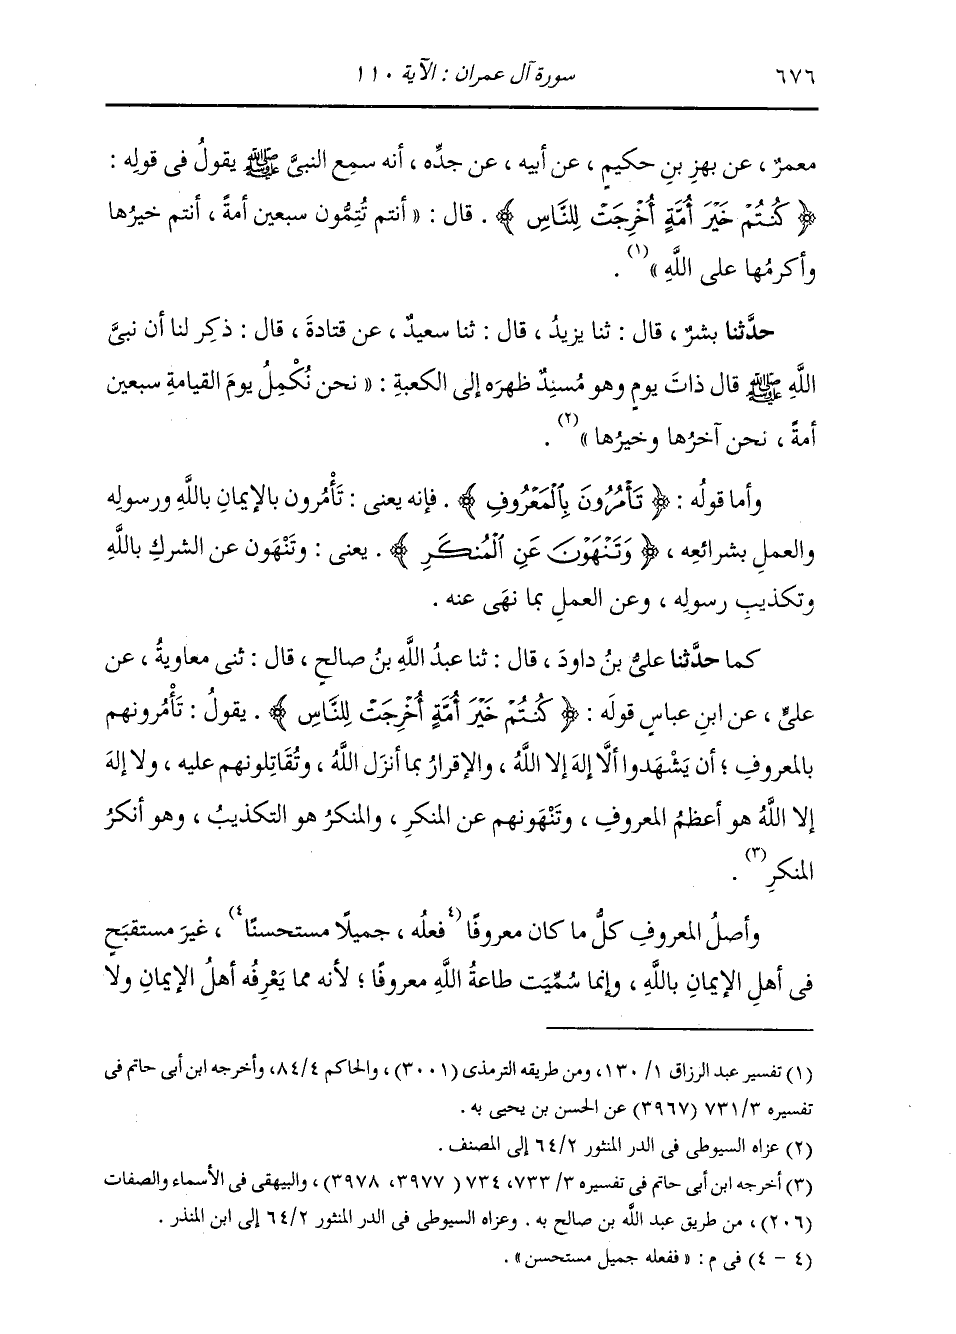 ٦٧٦ سورة آل عمران : الآية ١١٠
معمرٌ ، عن بهزِ بنِ حكيمٍ ، عن أبيه ، عن جدِّه ، أنه سمِع النبيَّ ﷺ يقولُ فى قولِه :
﴿ كُنتُمْ خَيْرَ أُمَّةٍ أُخْرِجَتْ لِلنَّاسِ ﴾ . قال : « أنتم تُتِمُّون سبعين أمةً ، أنتم خيرُها
وأكرمُها على اللَّهِ »(١) .
حدَّثنا بشرٌ ، قال : ثنا يزيدُ ، قال : ثنا سعيدٌ ، عن قتادةَ ، قال : ذكِر لنا أن نبىَّ
اللَّهِ ﷺ قال ذاتَ يومٍ وهو مُسنِدٌ ظهرَه إلى الكعبةِ : « نحن نُكْمِلُ يومَ القيامةِ سبعين
أمةً ، نحن آخرُها وخيرُها »(٢) .
وأما قولُه : ﴿ تَأْمُرُونَ بِٱلْمَعْرُوفِ ﴾ . فإنه يعنى : تَأْمُرون بالإيمانِ باللَّهِ ورسولِه
والعملِ بشرائعِه ، ﴿ وَتَنْهَوْنَ عَنِ ٱلْمُنكَرِ ﴾ . يعنى : وتَنْهَون عن الشركِ باللَّهِ
وتكذيبِ رسولِه ، وعن العملِ بما نهَى عنه .
كما حدَّثنا علىُّ بنُ داودَ ، قال : ثنا عبدُ اللَّهِ بنُ صالحٍ ، قال : ثنى معاويةُ ، عن
علىٍّ ، عن ابنِ عباسٍ قولَه : ﴿ كُنتُمْ خَيْرَ أُمَّةٍ أُخْرِجَتْ لِلنَّاسِ ﴾ . يقولُ : تَأْمُرونهم
بالمعروفِ ؛ أن يَشْهَدوا ألَّا إلهَ إلا اللَّهُ ، والإقرارُ بما أنزَل اللَّهُ ، وتُقَاتِلونهم عليه ، ولا إلهَ
إلا اللَّهُ هو أعظمُ المعروفِ ، وتَنْهَونهم عن المنكرِ ، والمنكرُ هو التكذيبُ ، وهو أنكرُ
المنكرِ(٣) .
وأصلُ المعروفِ كلُّ ما كان معروفًا (٤فعلُه ، جميلًا مستحسنًا٤) ، غيرَ مستقبَحٍ
فى أهلِ الإيمانِ باللَّهِ ، وإنما سُمِّيَت طاعةُ اللَّهِ معروفًا ؛ لأنه مما يَعْرِفُه أهلُ الإيمانِ ولا
(١) تفسير عبد الرزاق ١/ ١٣٠، ومن طريقه الترمذى (٣٠٠١) ، والحاكم ٨٤/٤، وأخرجه ابن أبى حاتم فى
تفسيره ٧٣١/٣ (٣٩٦٧) عن الحسن بن يحيى به .
(٢) عزاه السيوطى فى الدر المنثور ٦٤/٢ إلى المصنف .
(٣) أخرجه ابن أبى حاتم فى تفسيره ٣/ ٧٣٣، ٧٣٤ ( ٣٩٧٧، ٣٩٧٨) ، والبيهقى فى الأسماء والصفات
(٢٠٦) ، من طريق عبد اللَّه بن صالح به . وعزاه السيوطى فى الدر المنثور ٦٤/٢ إلى ابن المنذر .
(٤ - ٤) فى م : « ففعله جميل مستحسن » .